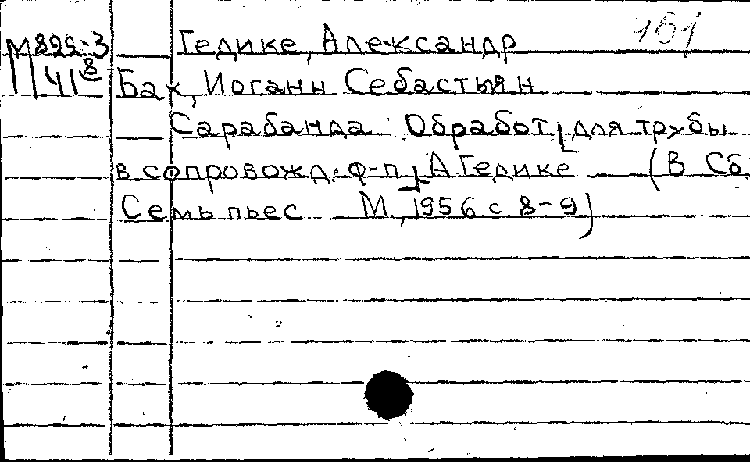 М 895-3 Гедике, Александр 161
11/41 8 Бах, Иоганн Себастьян
Сарабанда. Обработ. [для трубы
в сопровожд. ф-п.] А Гедике (В Сб.
Семь пьес М, 1956 с 8-9)